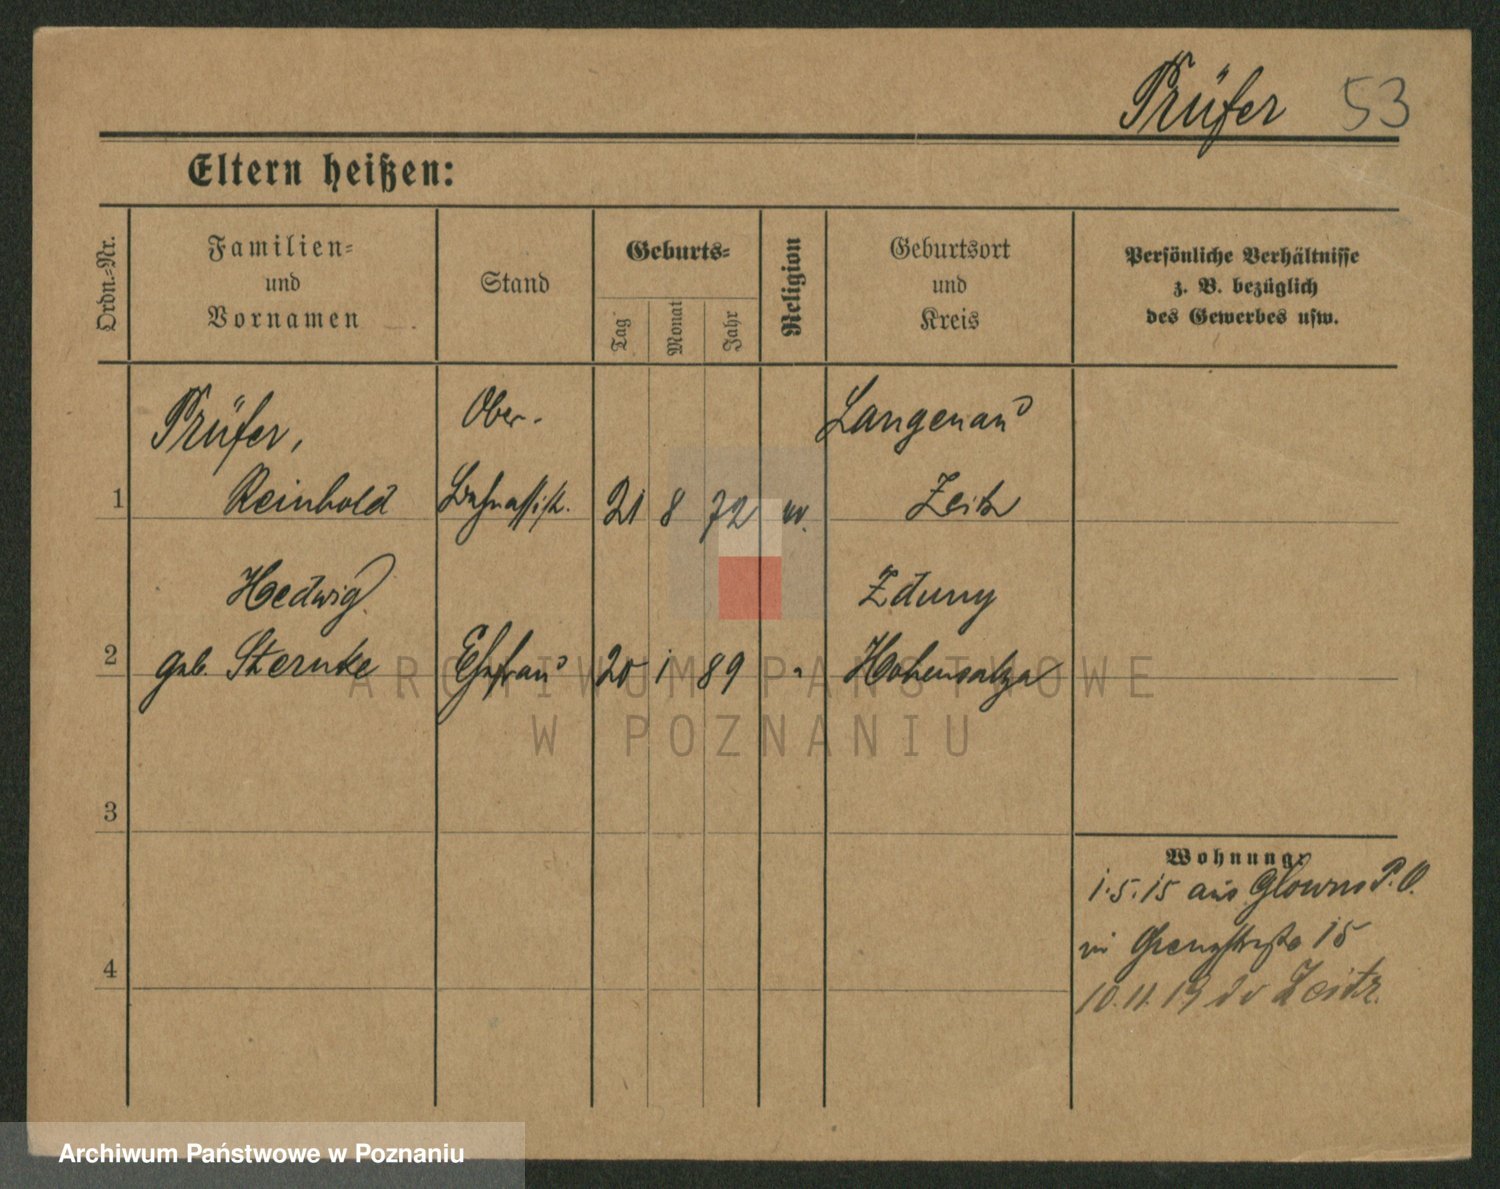 Prüfer 53
Eltern heißen:
Ordn.-Nr.
Familien-
und
Vornamen
Stand
Geburts-
Tag
Monat
Jahr
Religion
Geburtsort
und
Kreis
Persönliche Verhältnisse
z. B. bezüglich
des Gewerbes usw.
Prüfer, Ober- Langenau
1 Reinhold 21 8 72 Zeitz
Hedwig Zduny
2 geb. Sternke Ehefrau 20 1 89 " Hohensalza
3
4
Wohnung:
1.5.15 aus Glowno P.O.
Grenzstraße 15
10.11.19 Zeitz.
ARCHIWUM PAŃSTWOWE
W POZNANIU
Archiwum Państwowe w Poznaniu